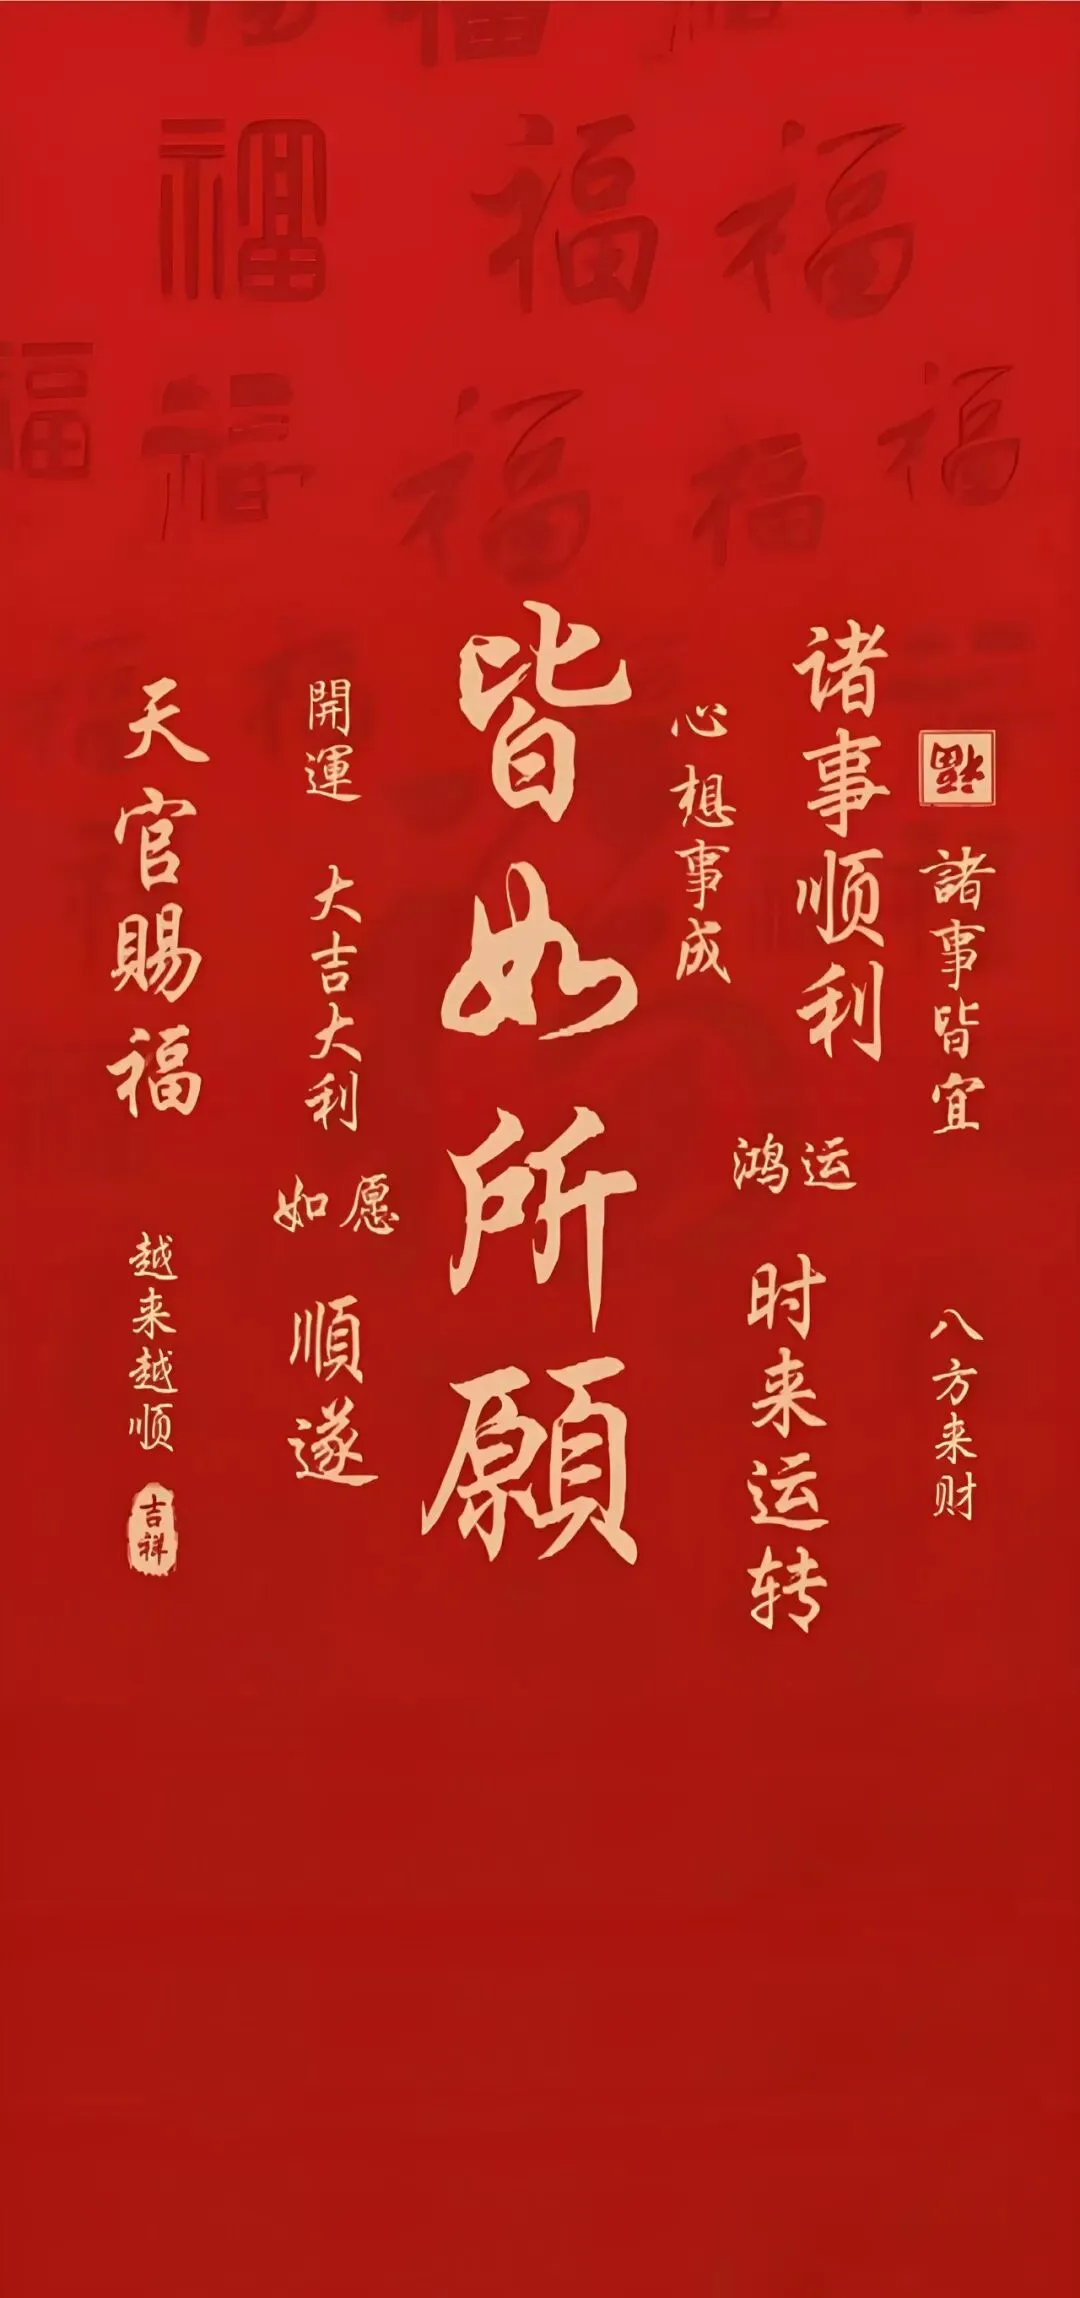 福
諸事皆宜
八方来财
诸事顺利
鸿运
时来运转
心想事成
皆如所願
開運
大吉大利
如愿
順遂
天官賜福
越来越顺
吉祥
福
福
福
福
福
福
福
福